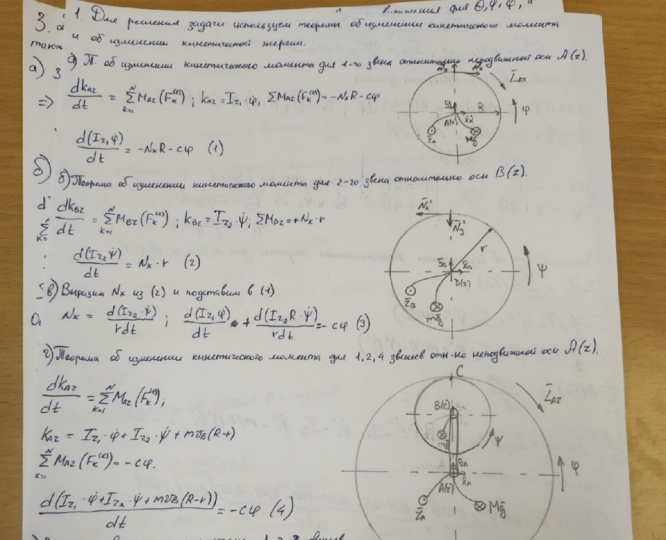 3. 1. Для решения задачи используем теоремы об изменении кинетического момента
также и об изменении кинетической энергии.
а) З а) Т. об изменении кинетического момента для 1-го звена относительно неподвижной оси A(z).
=> dk_Az/dt = Σ M_Az(F_k^(e)); k_Az = I_z1·φ̇, ΣM_Az(F_k^(e)) = -N_x R - cφ
d(I_z1 φ̇)/dt = -N_x R - cφ (1)
б) б) Теорема об изменении кинетического момента для 2-го звена относительно оси B(z).
dk_Bz/dt = Σ M_Bz(F_k^(e)); k_Bz = I_z2·ψ̇, ΣM_Bz = +N_x·r
d(I_z2 ψ̇)/dt = N_x·r (2)
в) Выразим N_x из (2) и подставим в (1)
N_x = d(I_z2·ψ̇)/rdt; d(I_z1 φ̇)/dt + d(I_z2 R·ψ̇)/rdt = -cφ (3)
г) Теорема об изменении кинетического момента для 1,2,4 звеньев отн-но неподвижной оси A(z).
dk_Az/dt = Σ M_Az(F_k^(e));
k_Az = I_z1·φ̇ + I_z2·ψ̇ + mv_B(R-r)
Σ M_Az(F_k^(e)) = -cφ.
d(I_z1·φ̇ + I_z2·ψ̇ + mv_B(R-r))/dt = -cφ (4)
N_x
L_Az
R
A(z)
φ
Mg
N_x'
N_y'
r
B(z)
ψ
Z_B
mg
C
L_Az
B(z)
ψ
φ
A(z)
Z_A
Mg